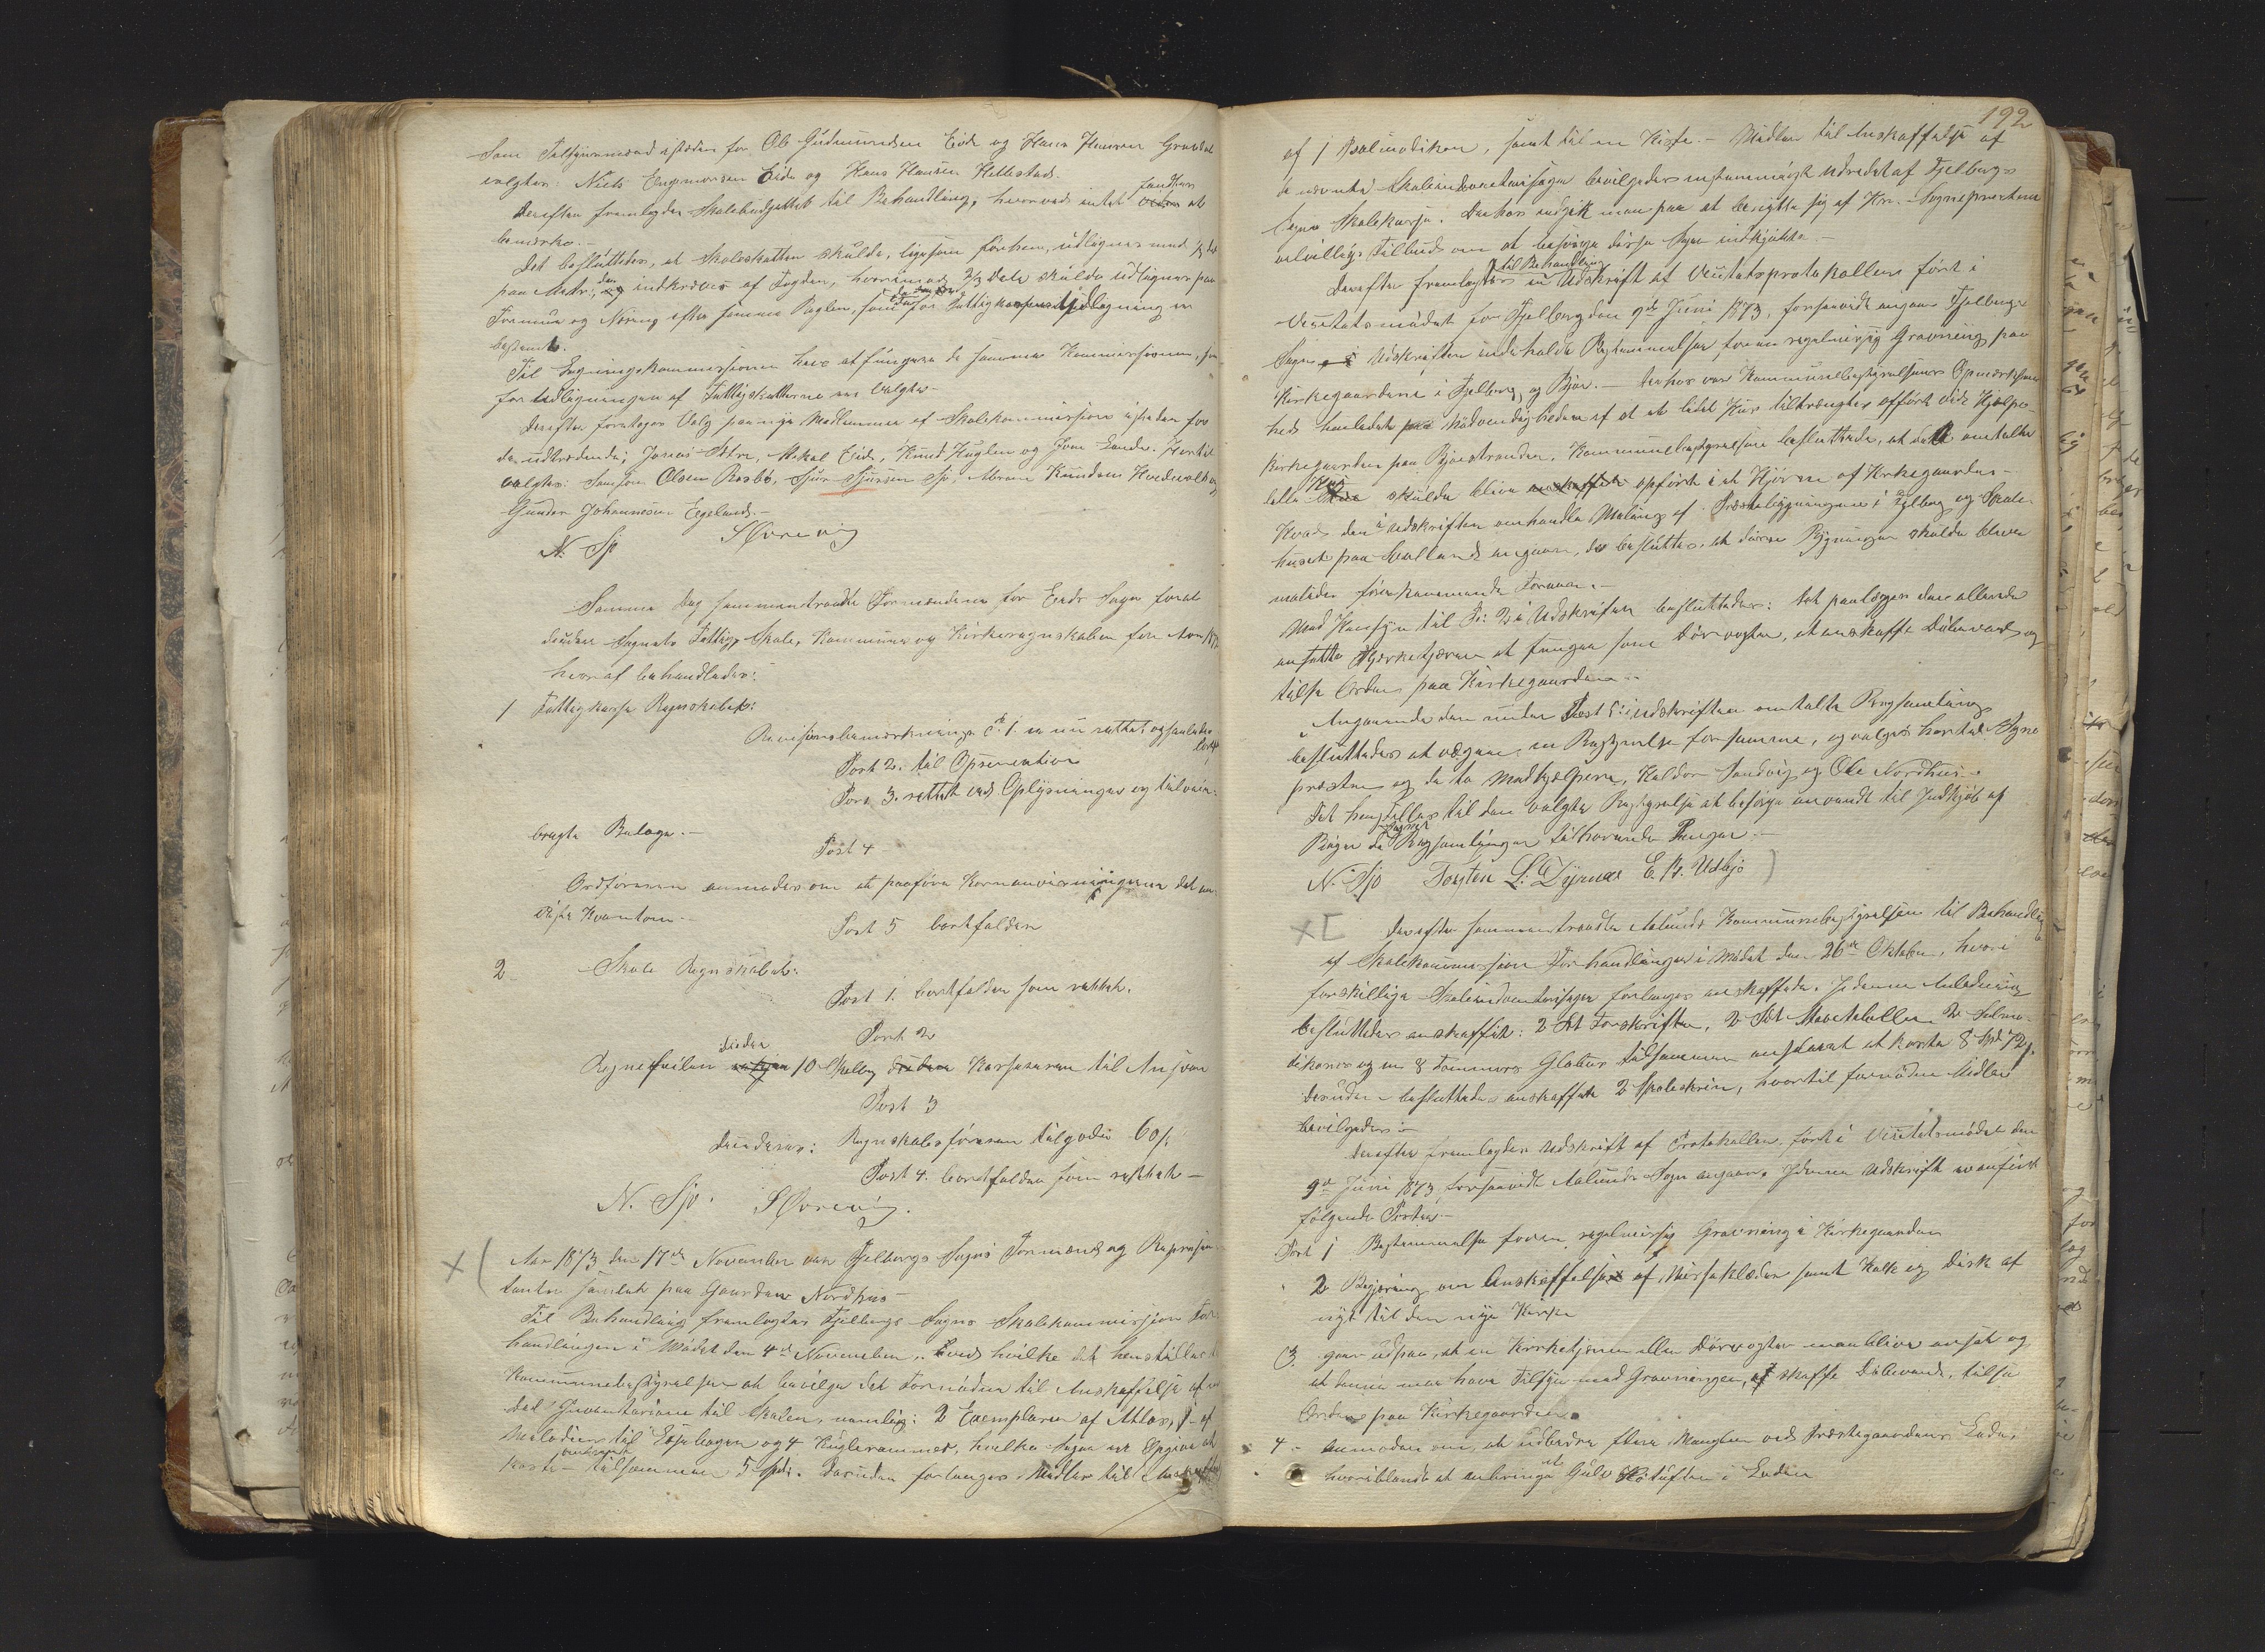 Som Tilsynsmænd istæden for Ole Gudmundsen Eide og Hans Hansen Grøndal
valgtes: Niels Engmansen Eide og Hans Hansen Hellestad.
Derefter fremlagdes Skolebudgettet til Behandling, hvorved intet fandtes at
bemærke.-
Det besluttedes, at Skoleskatten skulde, ligesom forhen, udlignes med 1/3 Del
paa Matr:, den indkræves af Fogden, hvorimod 2/3 Dele skulde udlignes paa
Formue og Næring efter samme Regler, som for Fattigkassens Udligning er
bestemt.
Til Ligningskommissionen have at fungere de samme Kommissioner, som
for Udligningen af Fattigskatterne ere valgte-
Derefter foretoges Valg paa nye Medlemmer af Skolekommission istæden for
de udtrædende; Jonas Sætre, Mikal Eide, Knud Huglen og Jon Lunde. Hertil
valgtes: Samson Olsen Rosbø, Sjur Sjursen Sjo, Abraam Knudsen Hvedevold og
Gunder Johannesen Egeland.-
N. Sjo S Øvrevig
Samme Dag sammentraadte Formændene for Eids Sogn forat
decidere Sognets Fattig, Skole, Kommune og Kirkeregnskaber for Aar
hvoraf behandledes:
1 Fattigkasse Regnskabet:
Revisionsbemærkninger P. 1. er nu rettet og saaledes
bortf.
Post 2. til Observation
Post 3. rettet ved Oplysninger og tilveie-
bragte Bilage.-
Post 4-
Ordføreren anmodes om at paaføre Kornanvisningerne det an-
viste Kvantum.-
Post 5 bortfalder
2 Skole Regnskabet:
Post 1. bortfalder som rettet.
Post 2
Regnefeilen 10 Skilling decideres Kassereren til Ansvar
Post 3
Decideres: Regnskabsføreren tilgode 60 s
Post 4. bortfalder som rettet-
N. Sjo. S Øvrevig.
Aar 1873 den 17de November var Fjelbergs Sogns Formænd og Repræsen-
tanter samlet paa Gaarden Nordhus-
Til Behandling fremlagdes Fjelbergs Sogns Skolekommission For-
handlinger i Mødet den 4de November, ved hvilke det henstilles til
Kommunebestyrelsen at bevilge det Fornødne til Anskaffelse af en
Del Inventarium til Skolen, nemlig: 2 Exemplarer af Atlas, 1 af
Melodier til Psalmebogen og 4 Kuglerammer, hvilke Sager er Opgivet at
koste tilsammen 5 Spd. Desuden forlanges Midler til Anskaffelse
192
af 1 Psalmodikon, samt til en Kiste.- Midler til Anskaffelse af
benævnte Skoleinventariesager bevilgedes enstemmigt udredet af Fjelbergs
Sogns Skolekasse. Derhos indgik man paa at benytte sig af Hr. Sognepræstens
velvillige Tilbud om at besørge disse Sager indkjøbte.-
Derefter fremlagdes til Behandling en Udskrift af Visitatsprotokollen ført i
Visitatsmødet for Fjelberg den 9de Juni 1873, forsaavidt angaar Fjelbergs
Sogn. Udskriften indeholder Bestemmelse for en regelmæssig Gravning paa
Kirkegaardene i Fjelberg og Bjoe.- Derhos var Kommunebestyrelsens Opmærksom-
hed henledet paa Nødvendigheden af at et lidet Hus tiltrænges opført ved Hjælpe-
kirkegaarden paa Bjoestranden. Kommunebestyrelsen besluttede, at dette omtalte
lille Hus skulde blive opført i et Hjørne af Kirkegaarden.-
Hvad den i Udskriften omhandlede Maling af Præstebygningen i Fjelberg og Skole-
huset paa Sælland angaar, da besluttes, at disse Bygninger skulde blive
malede førstkommende Foraar.-
Med Hensyn til Po: 2 i Udskriften besluttedes: at paalægge den allerede
ansatte Kirketjener at fungere som Dørvogter, at anskaffe Døbevand og
tilse Orden paa Kirkegaarden.-
Angaaende den under Post 5: i Udskriften omtalte Bogsamling
besluttedes at vælge en Bestyrelse for samme, og valgtes hertil Sogne-
præsten og de to Medhjælpere, Haldor Sandvig og Ole Nordhus.-
Det henstilles til den valgte Bestyrelse at besørge anvendt til Indkjøb af
Bøger de Bogsamlingen tilhørende Penge.-
N. Sjo Torsten L: Dyrnæs E. P. Udbjo
Derefter sammentraadte Ølunds Kommunebestyrelsen til Behandling
af Skolekommission Forhandlinger i Mødet den 26de Oktober, hvori
forskillige Skoleinventarisager forlanges anskaffede. I denne Anledning
besluttedes anskaffet: 2 Sæt Forskrifter, 2 Sæt Noetetabeller 2 Salmo-
dikoner og en 8 Tommers Globus tilsammen anslaaet at koste 8 Spd 72 s.
desuden besluttedes anskaffet 2 Skoleskrin, hvortil fornødne Midler
bevilgedes:-
Derefter fremlagdes Udskrift af Protokollen, ført i Visitatsmødet den
9de Juni 1873, forsaavidt Ølunds Sogn angaar. I denne Udskrift er anført
følgende Poster-
Post 1 Bestemmelse for en regelmæssig Gravning i Kirkegaarden
2 Begjæring om Anskaffelse af Messeklæder samt Kalk og Disk af
nyt til den nye Kirke
3. gaar ud paa, at en Kirketjener eller Dørvogter maa blive ansat og
at denne maa have Tilsyn med Gravningen, at skaffe Døbevand, tilse
Orden paa Kirkegaarden.
4 - anmoder om, at udbedre flere Mangler ved Præstegaardens Lade,
hvoriblandt at anbringe et Gulv i Laden